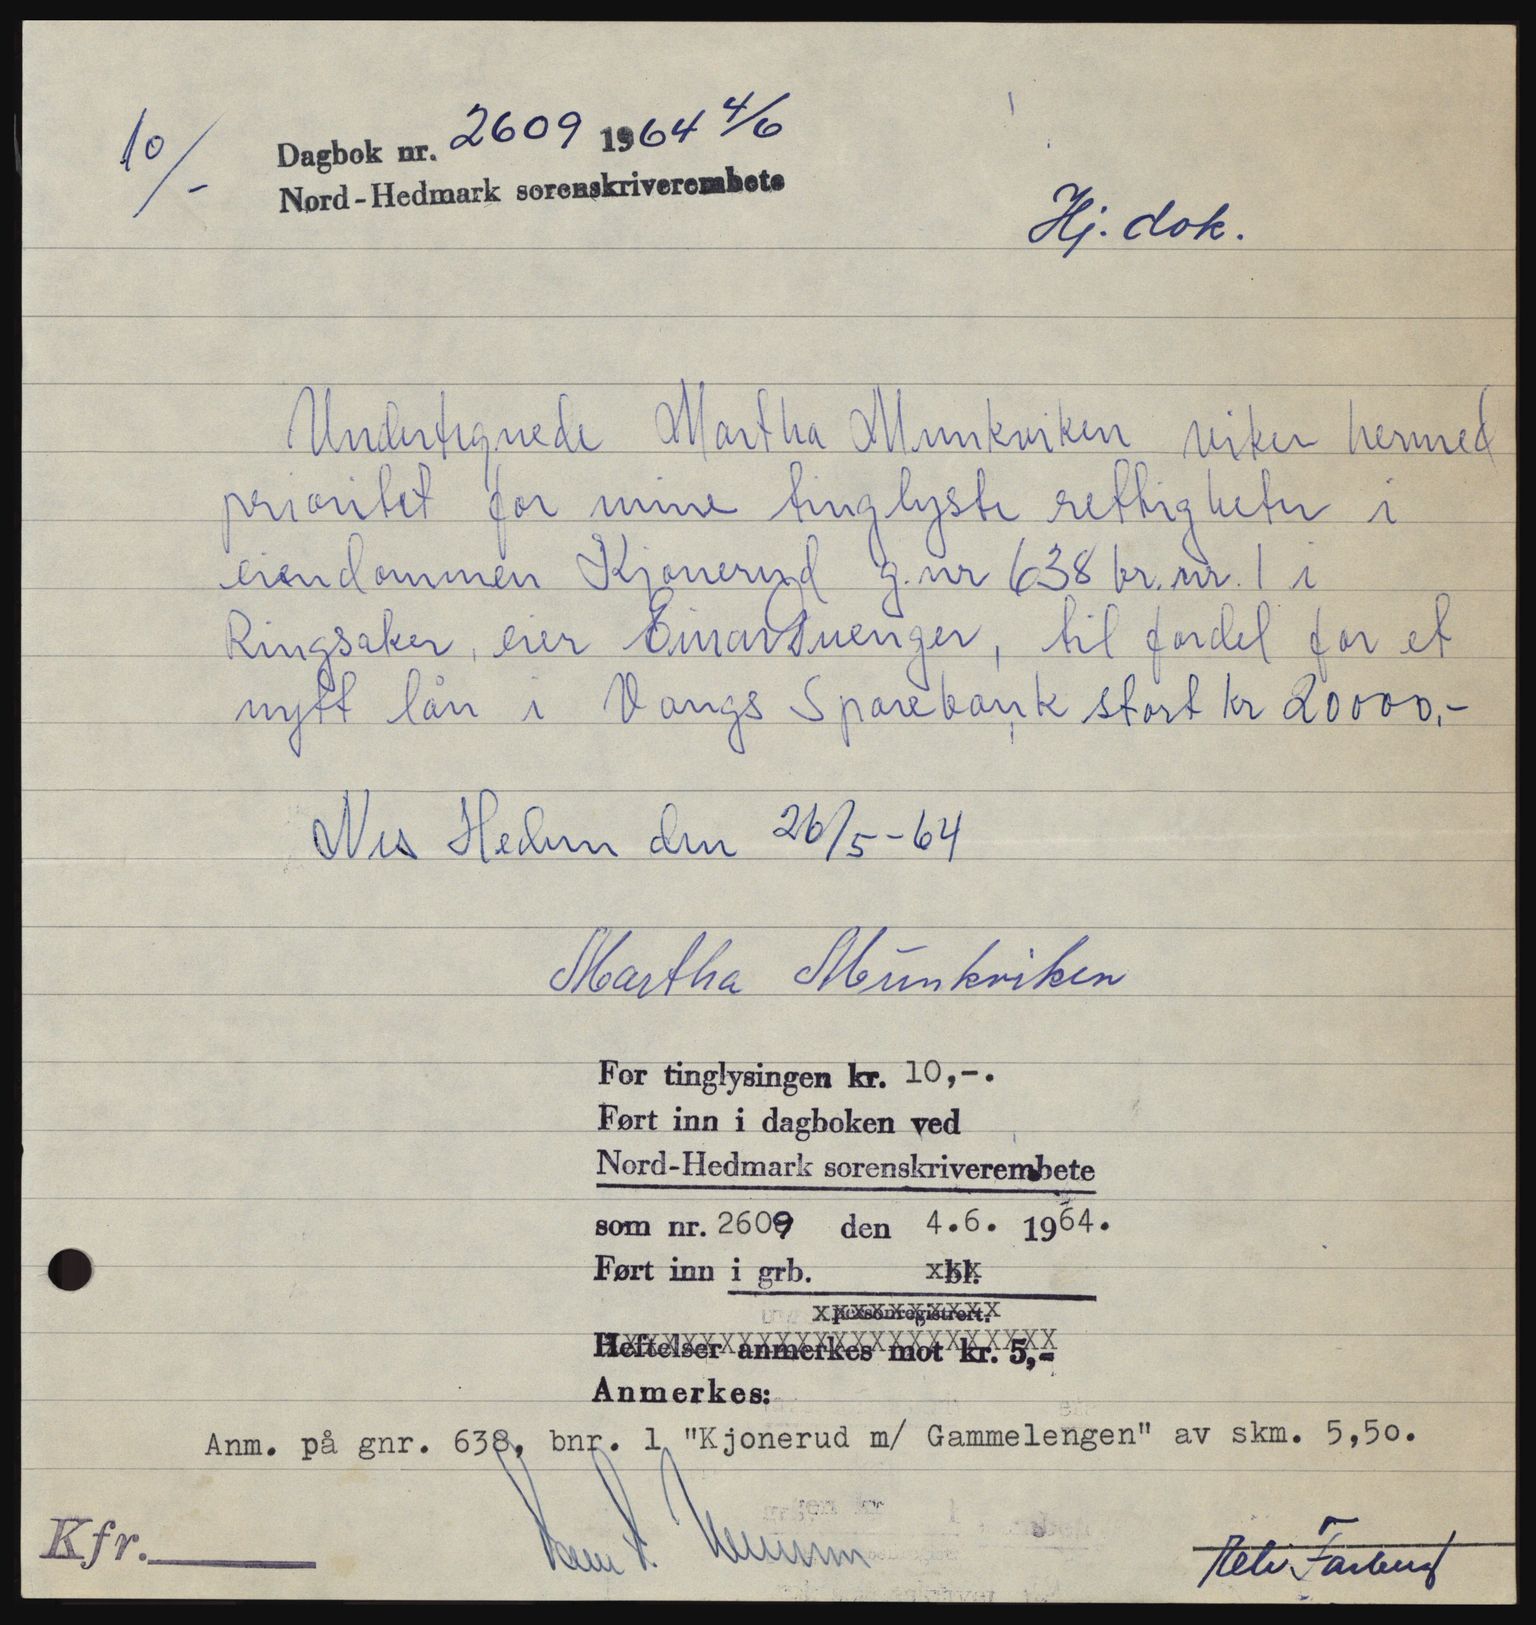 10/-
Dagbok nr. 2609 1964 4/6
Nord-Hedmark sorenskriverembete
Hj. dok.
Undertegnede Martha Munkviken viker hermed
prioritet for mine tinglyste rettigheter i
eiendommen Kjonerud g.nr 638 br.nr. 1 i
Ringsaker, eier Einar Svenger, til fordel for et
nytt lån i Vangs Sparebank stort kr 20000,-
Nes Hedm den 26/5-64
Martha Munkviken
For tinglysingen kr. 10,-.
Ført inn i dagboken ved
Nord-Hedmark sorenskriverembete
som nr. 2609 den 4.6. 1964.
Ført inn i grb. bl.
personregistrert.
Heftelser anmerkes mot kr. 5,-
Anmerkes:
Anm. på gnr. 638, bnr. 1 "Kjonerud m/ Gammelengen" av skm. 5,50.
Kfr.